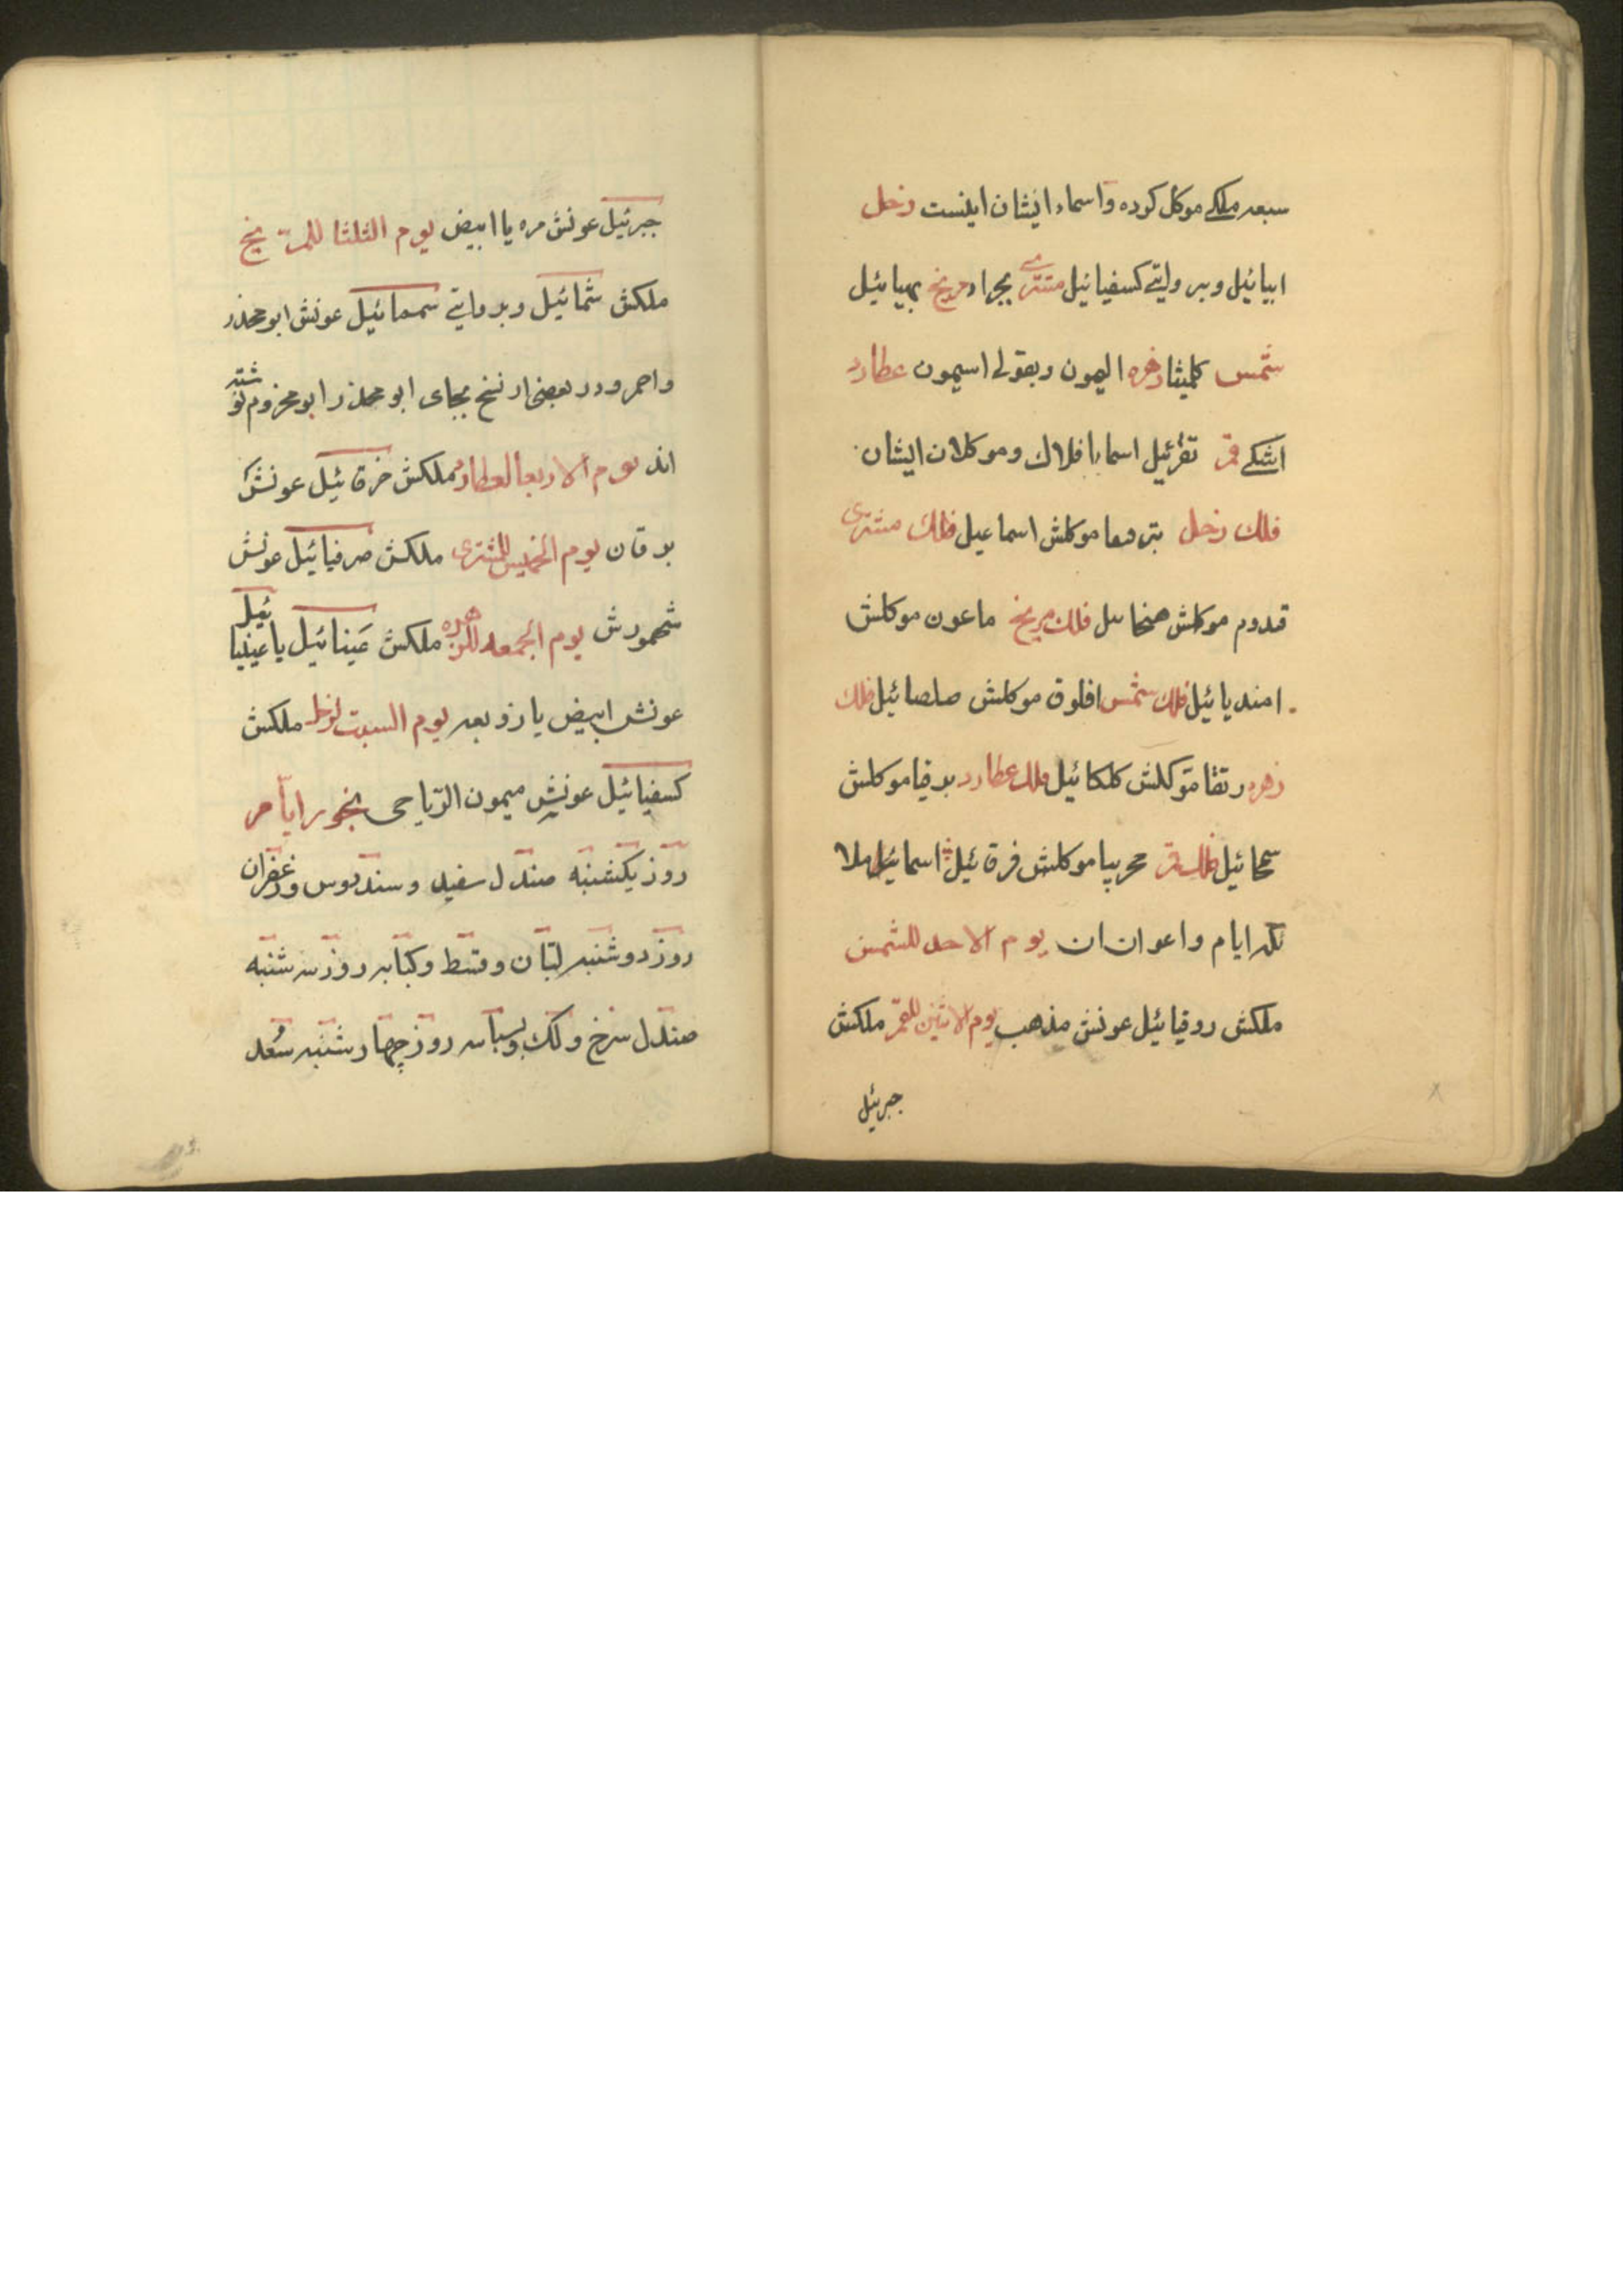 سبعه ملکے موکل کرده و اسماء ایشان اینست زحل
ابیائیل و بر وایتے کسفیائیل مشتری بجراد مریخ بهیائیل
شمس کلمیثا زهره الیمون و بقولے اسیمون عطارد
اشکے قمر تقرئیل اسما با فلاک و موکلان ایشان
فلک زحل موکلش اسماعیل فلک مشتری
قدوم موکلش فلک مریخ ماعون موکلش
امندیائیل فلک شمس افلوق موکلش صلصائیل فلک
زهره رتقا موکلش کلکائیل فلک عطارد برقیا موکلش
سمحائیل فلک قمر موکلش فرقئیل اسمائیل ملا
ئکه ایام و اعوان ان یوم الاحد للشمس
ملکش روقیائیل عونش مذهب یوم الاثنین للقمر ملکش
جبرئیل
جبرئیل عونش مره یا ابیض یوم الثلثا للمریخ
ملکش شمائیل و بروایتے سمسمائیل عونش ابو محذر
و احمر و در بعضی از نسخ بجای ابو محذر ابو مخزوم نوشته
اند یوم الاربعا لعطارد ملکش خرقائیل عونش
برقان یوم الخمیس للمشتری ملکش صرفیائیل عونش
شمهورش یوم الجمعه للزهره ملکش عینائیل یا عینیائیل
عونش ابیض یا زوبعه یوم السبت لزحل ملکش
کسفیائیل عونش میمون الریاحی بخور ایام
روز یکشنبه صندل سفید و سندروس و زعفران
روز دوشنبه لبان و قسط و کبابه روز سه شنبه
صندل سرخ و لک و بسباسه روز چهار شنبه سعد